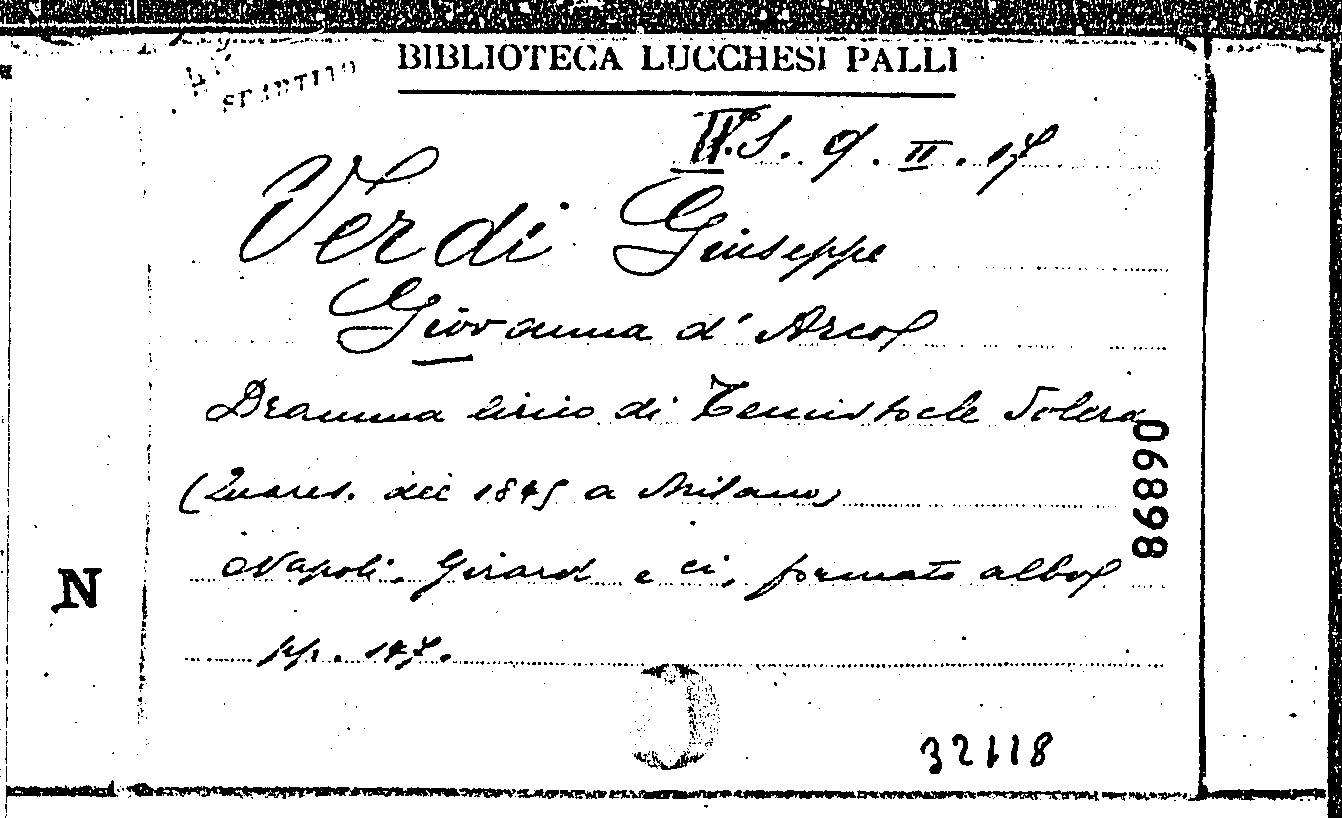 BIBLIOTECA LUCCHESI PALLI
SPARTITO
II.S. 9. II. 17
Verdi Giuseppe
Giovanna d'Arco
Dramma lirico di Temistocle Solera
(Quares. del 1845 a Milano)
Napoli, Girard e Ci, formato albo
pp. 147.
86890
N
32118